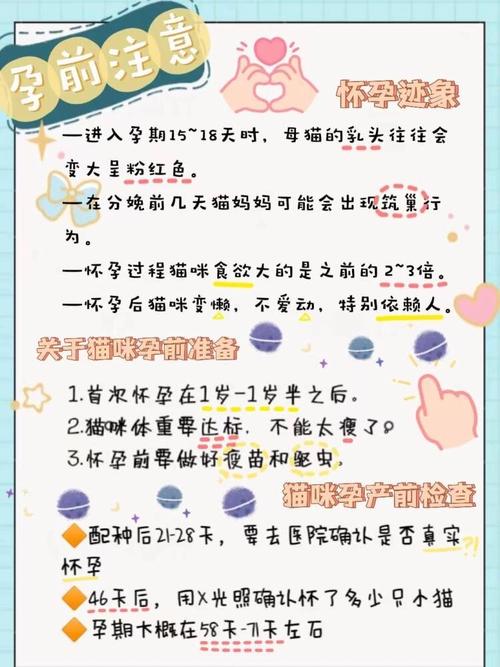 孕前注意
怀孕迹象
—进入孕期15~18天时，母猫的乳头往往会
变大呈粉红色。
—在分娩前几天猫妈妈可能会出现筑巢行
为。
—怀孕过程猫咪食欲大的是之前的2~3倍。
—怀孕后猫咪变懒，不爱动，特别依赖人。
关于猫咪孕前准备
1.首次怀孕在1岁-1岁半之后。
2.猫咪体重要达标，不能太瘦了。
3.怀孕前要做好疫苗和驱虫。
猫咪孕产前检查
配种后21-28天，要去医院确认是否真实?!
怀孕
46天后，用X光照确认怀了多少只小猫
孕期大概在58天-71天左右